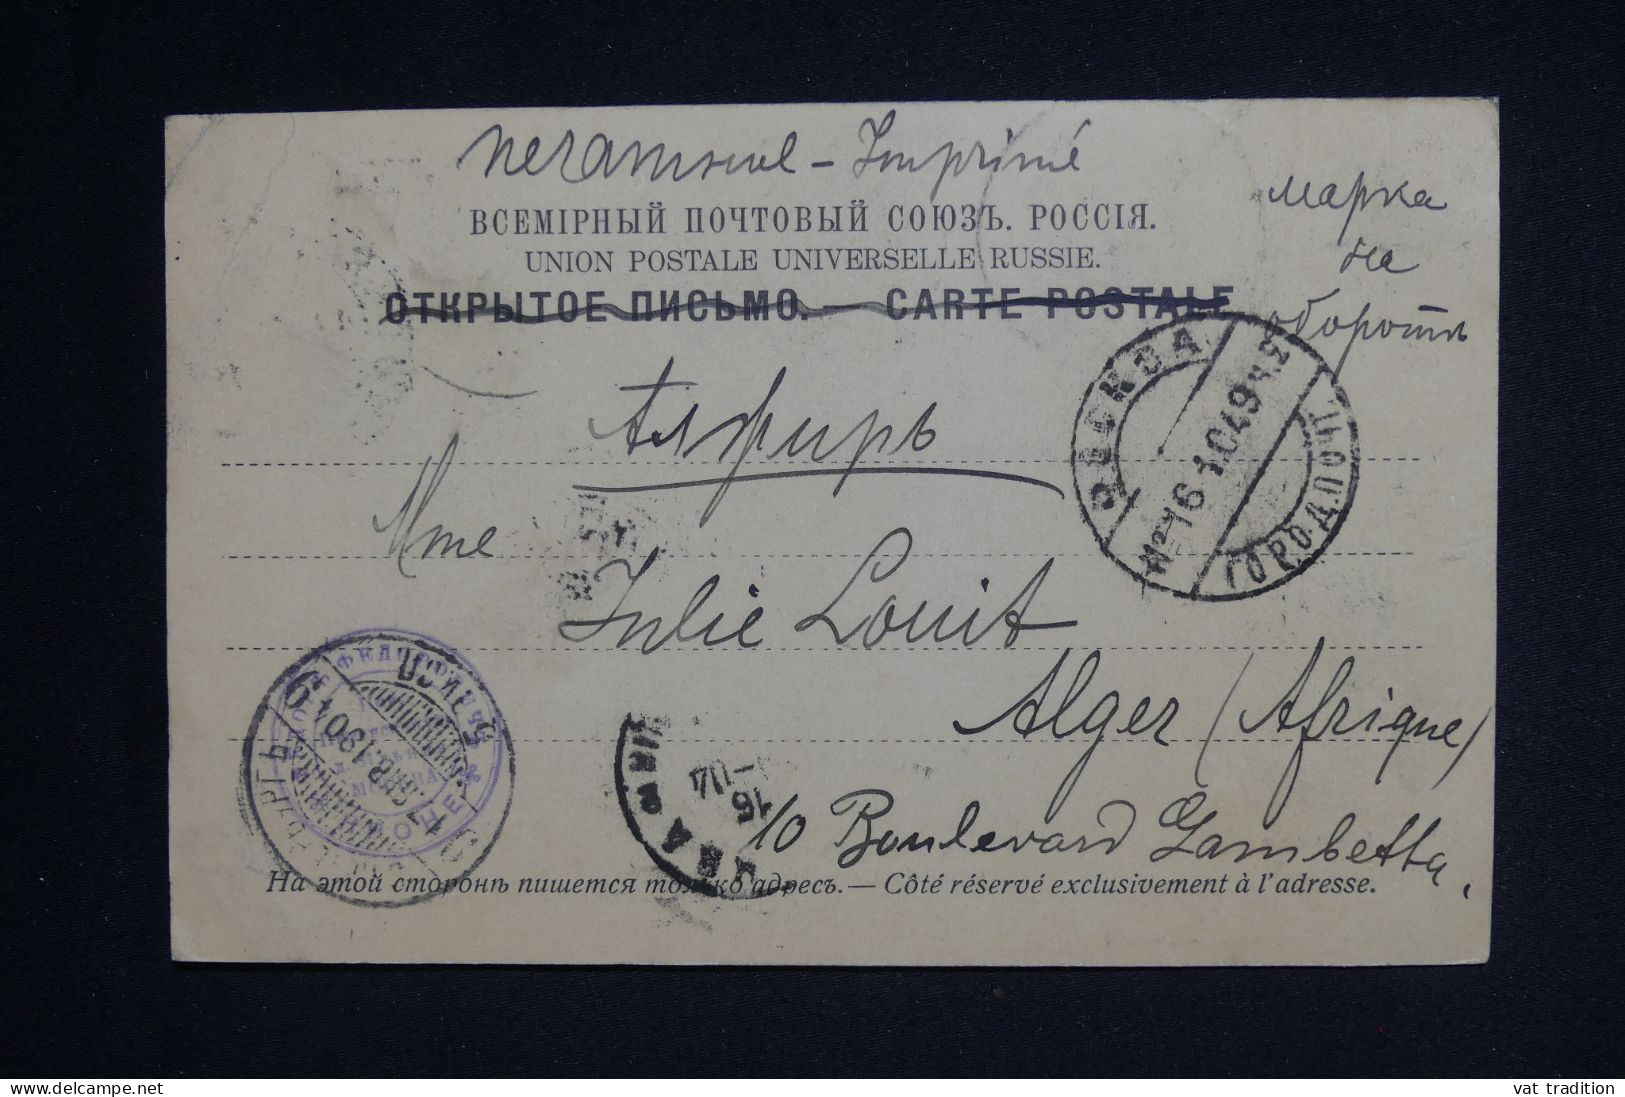 печатное - Imprimé
марка
на
оборотѣ
ВСЕМІРНЫЙ ПОЧТОВЫЙ СОЮЗЪ. РОССІЯ.
UNION POSTALE UNIVERSELLE RUSSIE.
ОТКРЫТОЕ ПИСЬМО. — CARTE POSTALE
МОСКВА
ГОРОД. ПОЧТ
Алжиръ
Mme
Julie Louit
Alger (Afrique)
10 Boulevard Gambetta.
МОСКВА
На этой сторонѣ пишется только адресъ. — Côté réservé exclusivement à l'adresse.
vat tradition